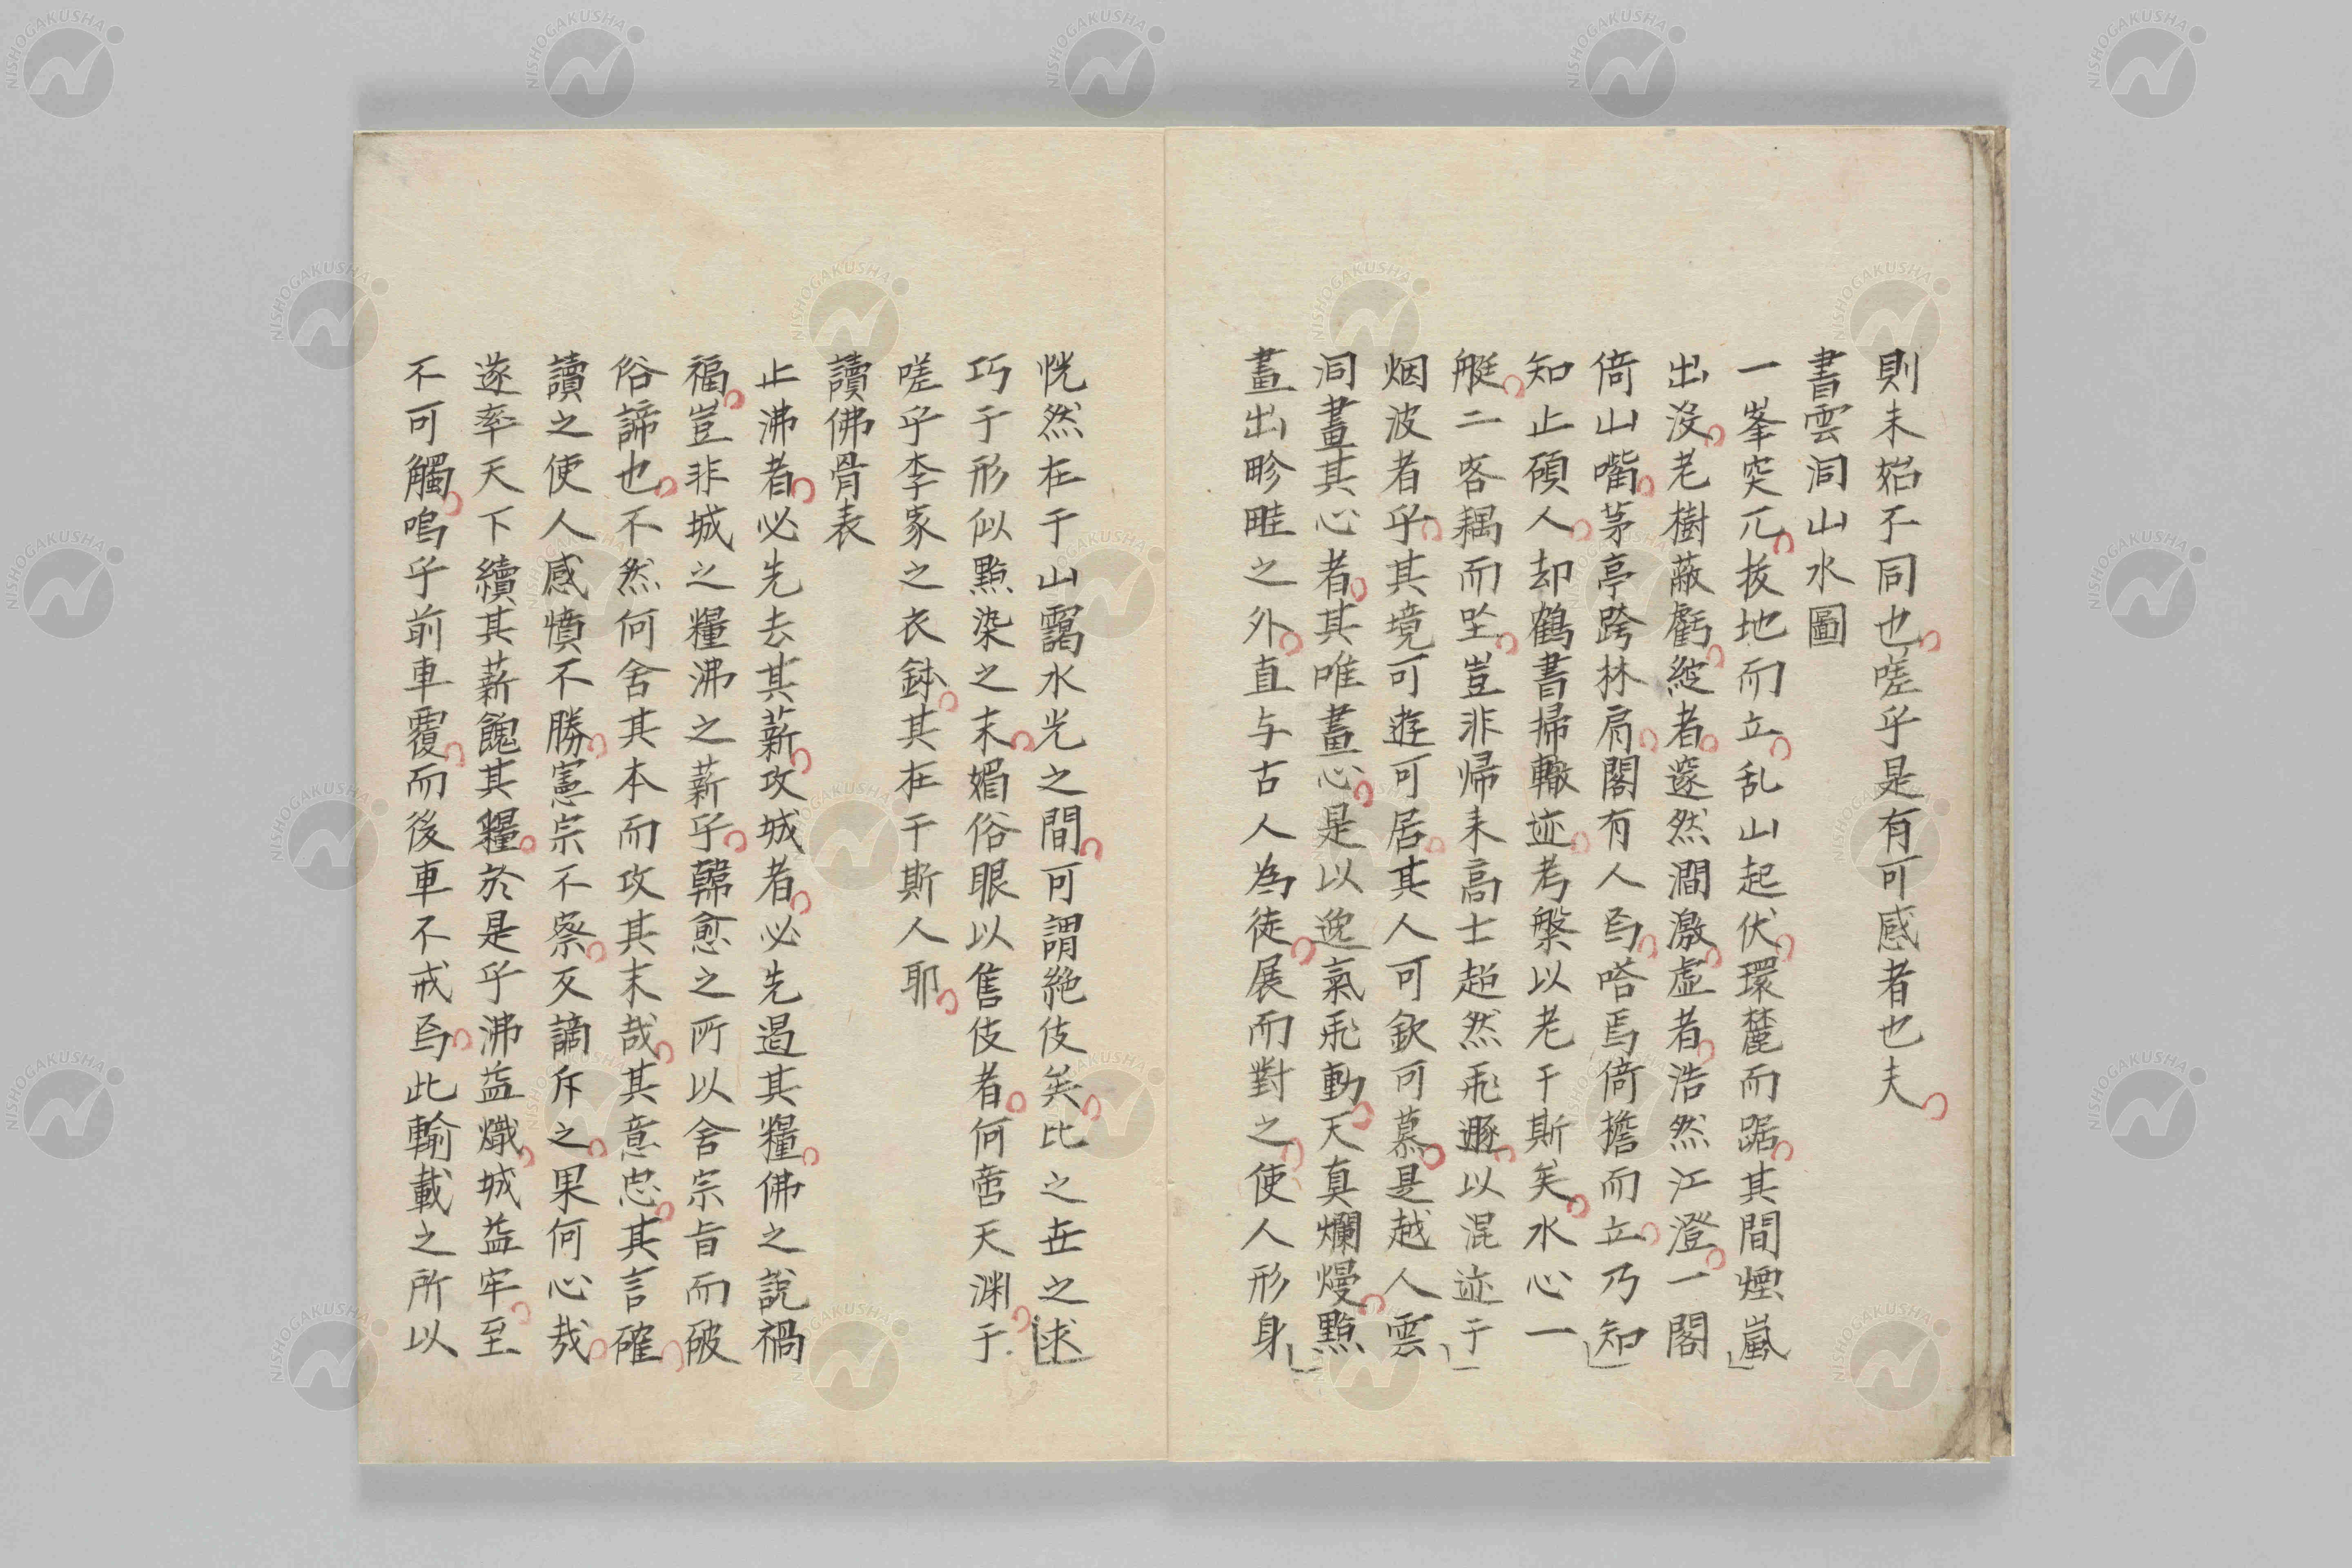 則未始不同也嗟乎是有可感者也夫
書雲洞山水圖
一峯突兀抜地而立乱山起伏環麓而踞其間煙嵐
出沒老樹蔽虧綻者邃然澗激虛者浩然江澄一閣
倚山嘴茅亭跨林肩閣有人焉嗒焉倚檐而立乃知
知止碩人却鶴書掃轍迹考槃以老于斯矣水心一
艇二客耦而坐豈非帰耒高士超然飛遯以混迹于
烟波者乎其境可遊可居其人可欽可慕是越人雲
洞畫其心者其唯畫心是以逸氣飛動天真爛熳點
畫出畛畦之外直与古人為徒展而對之使人形身
恍然在于山靄水光之間可謂絶伎矣比之世之求
巧于形似點染之末媚俗眼以售伎者何啻天渊于
嗟乎李家之衣鉢其在于斯人耶
讀佛骨表
止沸者必先去其薪攻城者必先遏其糧佛之說禍
福豈非城之糧沸之薪乎韓愈之所以舍宗旨而破
俗諦也不然何舍其本而攻其末哉其意忠其言確
讀之使人感憤不勝憲宗不察又謫斥之果何心哉
遂率天下續其薪餽其糧於是乎沸益熾城益牢至
不可觸嗚乎前車覆而後車不戒焉此輸載之所以
NISHOGAKUSHA